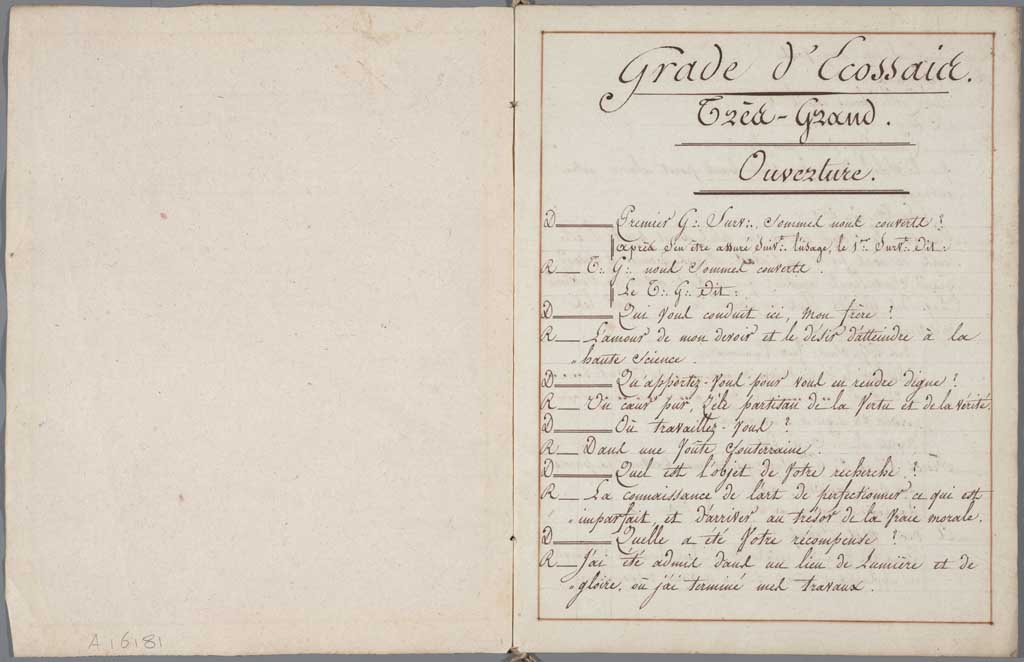 A 16181
Grade d'Ecossais.
Très-Grand.
Ouverture.
D Premier G∴ Surv∴ Sommes nous couverts ?
après s'en être assuré Suiv∴ l'usage, le 1er Surv∴ dit :
R T∴ G∴ nous Sommes couverts.
Le T∴ G∴ dit :
D Qui vous conduit ici, mon frère ?
R L'amour de mon devoir et le désir d'atteindre à la
haute Science.
D Qu'apportez-vous pour vous en rendre digne ?
R Un cœur pur, Zélé partisan de la Vertu et de la Vérité.
D Où travaillez-vous ?
R Dans une voûte Souterraine.
D Quel est l'objet de Votre recherche ?
R La connaissance de l'art de perfectionner ce qui est
imparfait, et d'arriver au trésor de la vraie morale.
D Quelle a été Votre récompense ?
R J'ai été admis dans un lieu de Lumière et de
gloire, où j'ai terminé mes travaux.